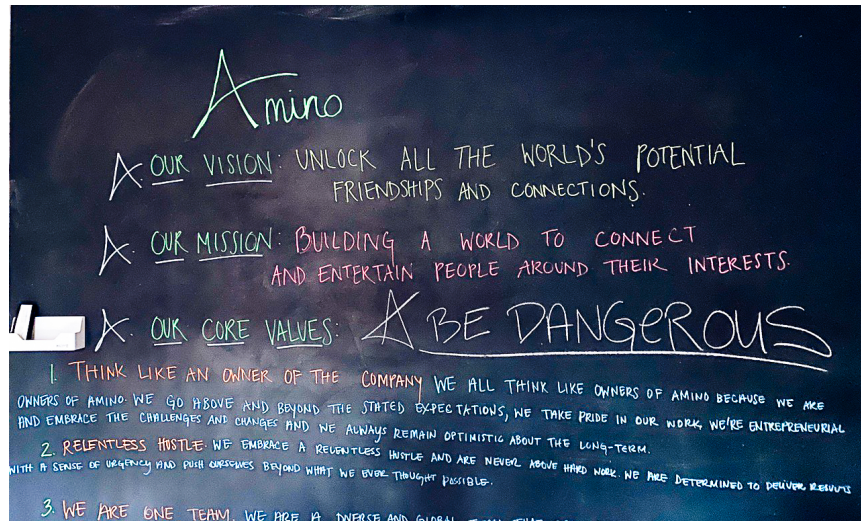 Amino
A. OUR VISION: UNLOCK ALL THE WORLD'S POTENTIAL
FRIENDSHIPS AND CONNECTIONS.
A. OUR MISSION: BUILDING A WORLD TO CONNECT
AND ENTERTAIN PEOPLE AROUND THEIR INTERESTS.
A. OUR CORE VALUES: A BE DANGEROUS
1. THINK LIKE AN OWNER OF THE COMPANY WE ALL THINK LIKE OWNERS OF AMINO BECAUSE WE ARE
OWNERS OF AMINO. WE GO ABOVE AND BEYOND THE STATED EXPECTATIONS, WE TAKE PRIDE IN OUR WORK, WE'RE ENTREPRENEURIAL
AND EMBRACE THE CHALLENGES AND CHANGES AND WE ALWAYS REMAIN OPTIMISTIC ABOUT THE LONG-TERM.
2. RELENTLESS HUSTLE. WE EMBRACE A RELENTLESS HUSTLE AND ARE NEVER ABOVE HARD WORK. WE ARE DETERMINED TO DELIVER RESULTS
WITH A SENSE OF URGENCY AND PUSH OURSELVES BEYOND WHAT WE EVER THOUGHT POSSIBLE.
3. WE ARE ONE TEAM. WE ARE A DIVERSE AND GLOBAL